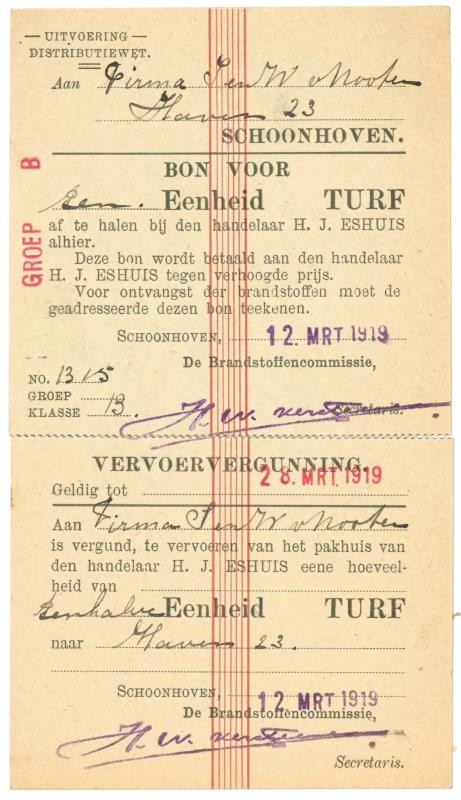 — UITVOERING —
DISTRIBUTIEWET.
Aan Firma S en W v Nooten
Haven 23
SCHOONHOVEN.
GROEP B
BON VOOR
een. Eenheid TURF
af te halen bij den handelaar H. J. ESHUIS
alhier.
Deze bon wordt betaald aan den handelaar
H. J. ESHUIS tegen verhoogde prijs.
Voor ontvangst der brandstoffen moet de
geadresseerde dezen bon teekenen.
SCHOONHOVEN, 12 MRT 1919
De Brandstoffencommissie,
NO. 1315
GROEP
KLASSE B.
H. W.
Secretaris.
VERVOERVERGUNNING.
Geldig tot 28. MRT 1919
Aan Firma S en W v Nooten
is vergund, te vervoeren van het pakhuis van
den handelaar H. J. ESHUIS eene hoeveel-
heid van
Eenhalve Eenheid TURF
naar Haven 23.
SCHOONHOVEN, 12 MRT 1919
De Brandstoffencommissie,
H. W.
Secretaris.